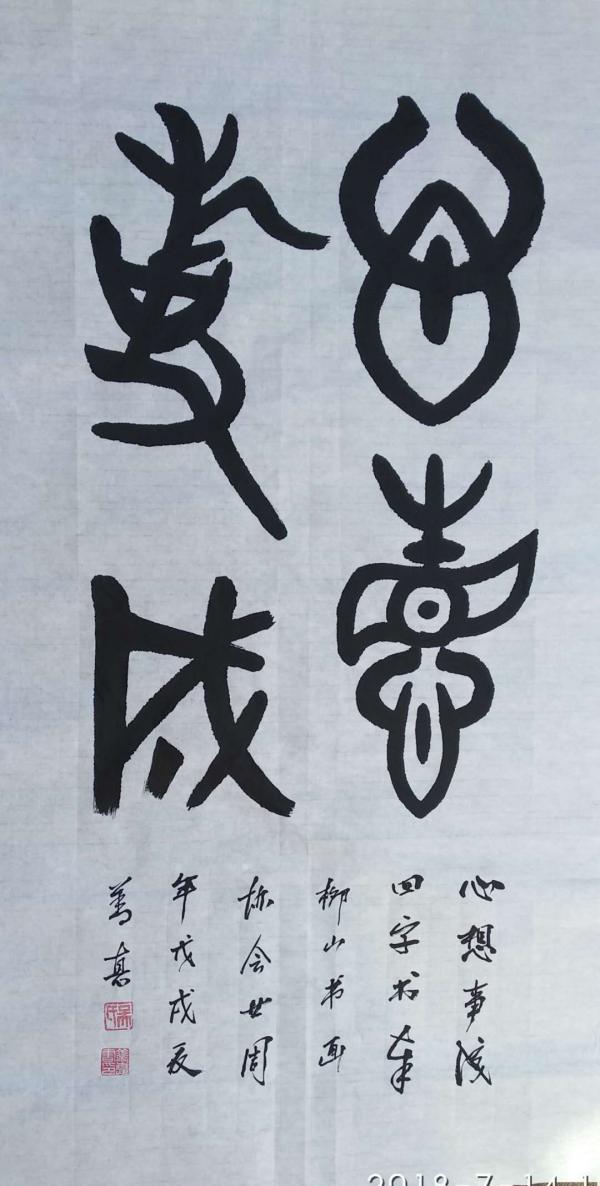 心想
事成
心想事成
四字书奉
柳山书画
协会廿周
年戊戌夏
2018-7-14 1